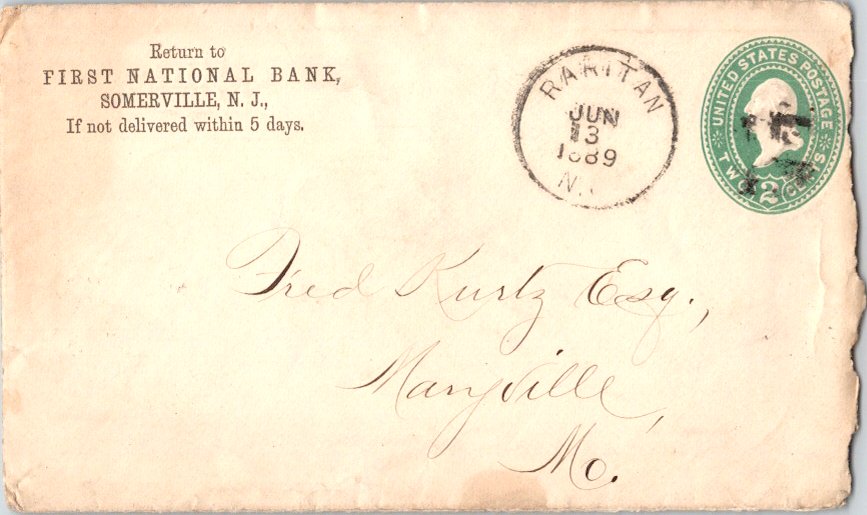 Return to
FIRST NATIONAL BANK,
SOMERVILLE, N. J.,
If not delivered within 5 days.
RARITAN
JUN
13
1889
N.
UNITED STATES POSTAGE
TWO 2 CENTS
Fred Kurtz Esq.,
Maryville,
Mo.